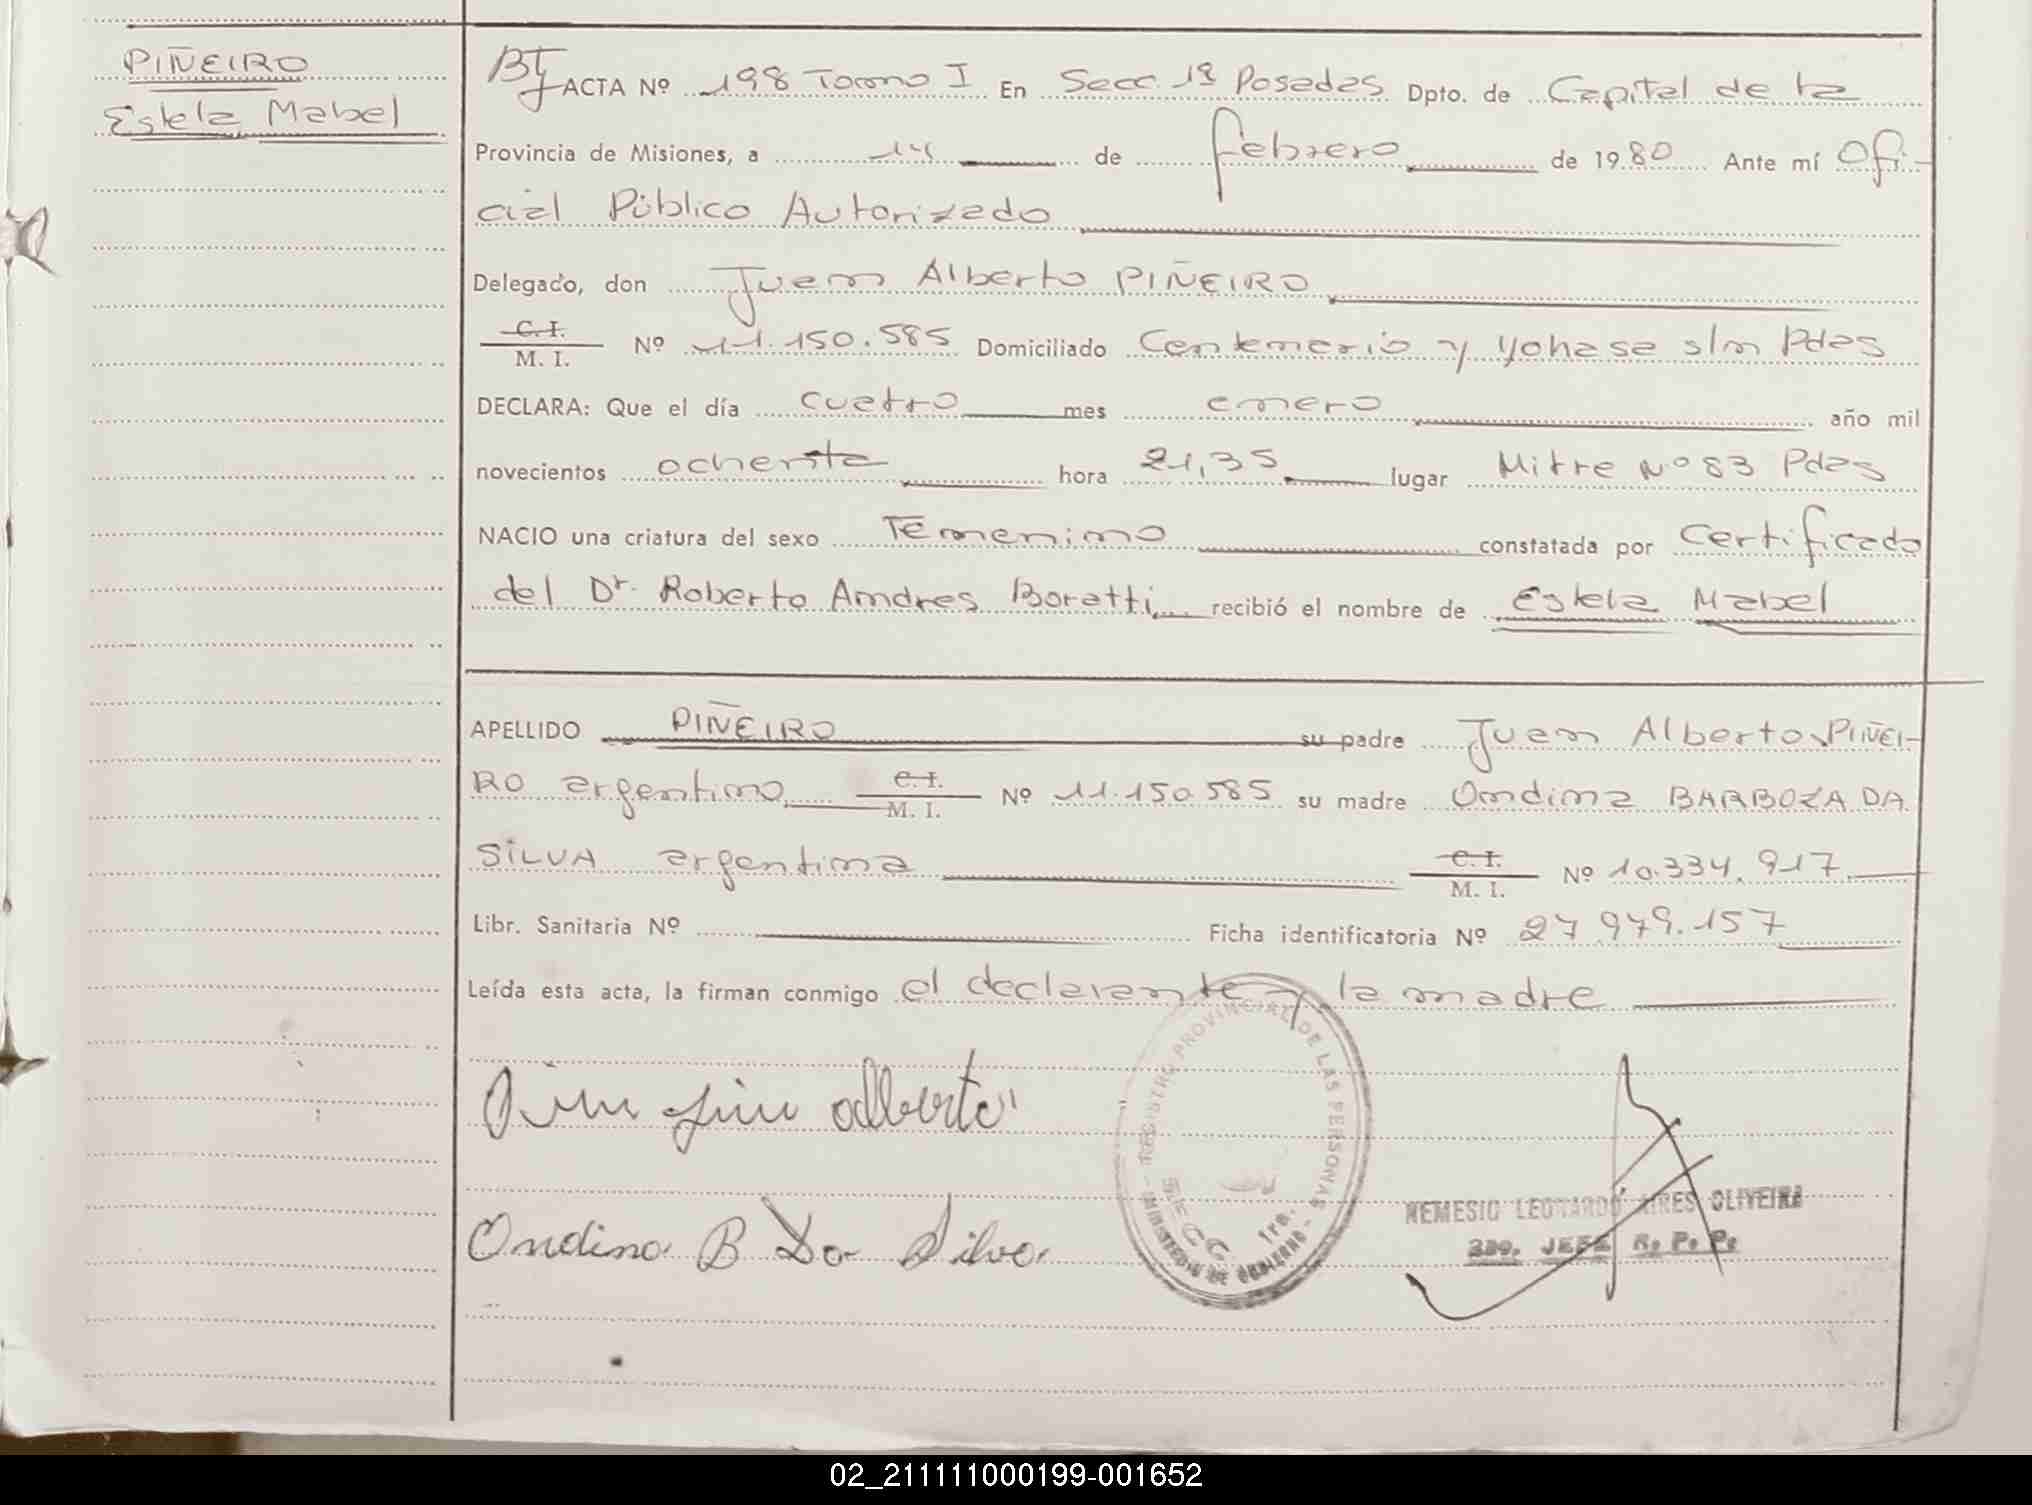 PIÑEIRO
Estela Mabel
ACTA Nº 198 Tomo I En Secc. 1ª Posadas Dpto. de Capital de la
Provincia de Misiones, a de febrero de 1980 Ante mí Ofi-
cial Público Autorizado
Delegado, don Juan Alberto PIÑEIRO
C.I.
M. I. Nº 11.150.585 Domiciliado Centenario y Yohasa s/n Pdas
DECLARA: Que el día cuatro mes enero año mil
novecientos ochenta hora 21,35 lugar Mitre Nº 83 Pdas
NACIO una criatura del sexo Femenino constatada por Certificado
del Dr. Roberto Andres Boratti, recibió el nombre de Estela Mabel
APELLIDO PIÑEIRO su padre Juan Alberto PIÑEI-
RO argentino, C.I. M. I. Nº 11.150.585 su madre Ondina BARBOZA DA
SILVA argentina C.I. M. I. Nº 10.334.917.
Libr. Sanitaria Nº Ficha identificatoria Nº 27.979.157
Leída esta acta, la firman conmigo el declarante y la madre
REGISTRO PROVINCIAL DE LAS PERSONAS - MINISTERIO DE GOBIERNO -
SECC. 1ra.
alberto
Ondina B Da Silva
NEMESIO LEONARDO AIRES OLIVEIRA
2DO. JEFE R. P. P.
02_211111000199-001652